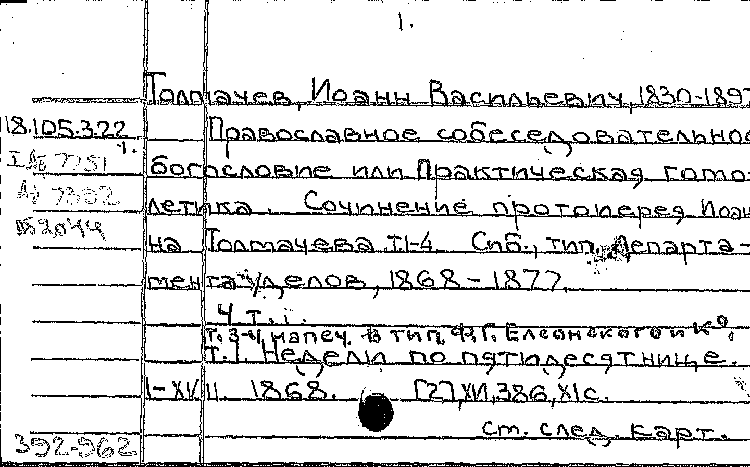 1.
Толмачев, Иоанн Васильевич, 1830-1897
18.105.3.22 Православное собеседовательное
богословие или Практическая гоми-
летика. Сочинение протоиерея Иоан-
на Толмачева. Т.1-4 Спб., тип. Департа-
мента уделов, 1868-1877.
4 т.
Т. 3-4 напеч. в тип. Ф.Г. Елеонского и К°.
Т. 1. Недели по пятидесятнице.
1868. [2], XVI, 386, XI с.
см. след. карт.
392-962